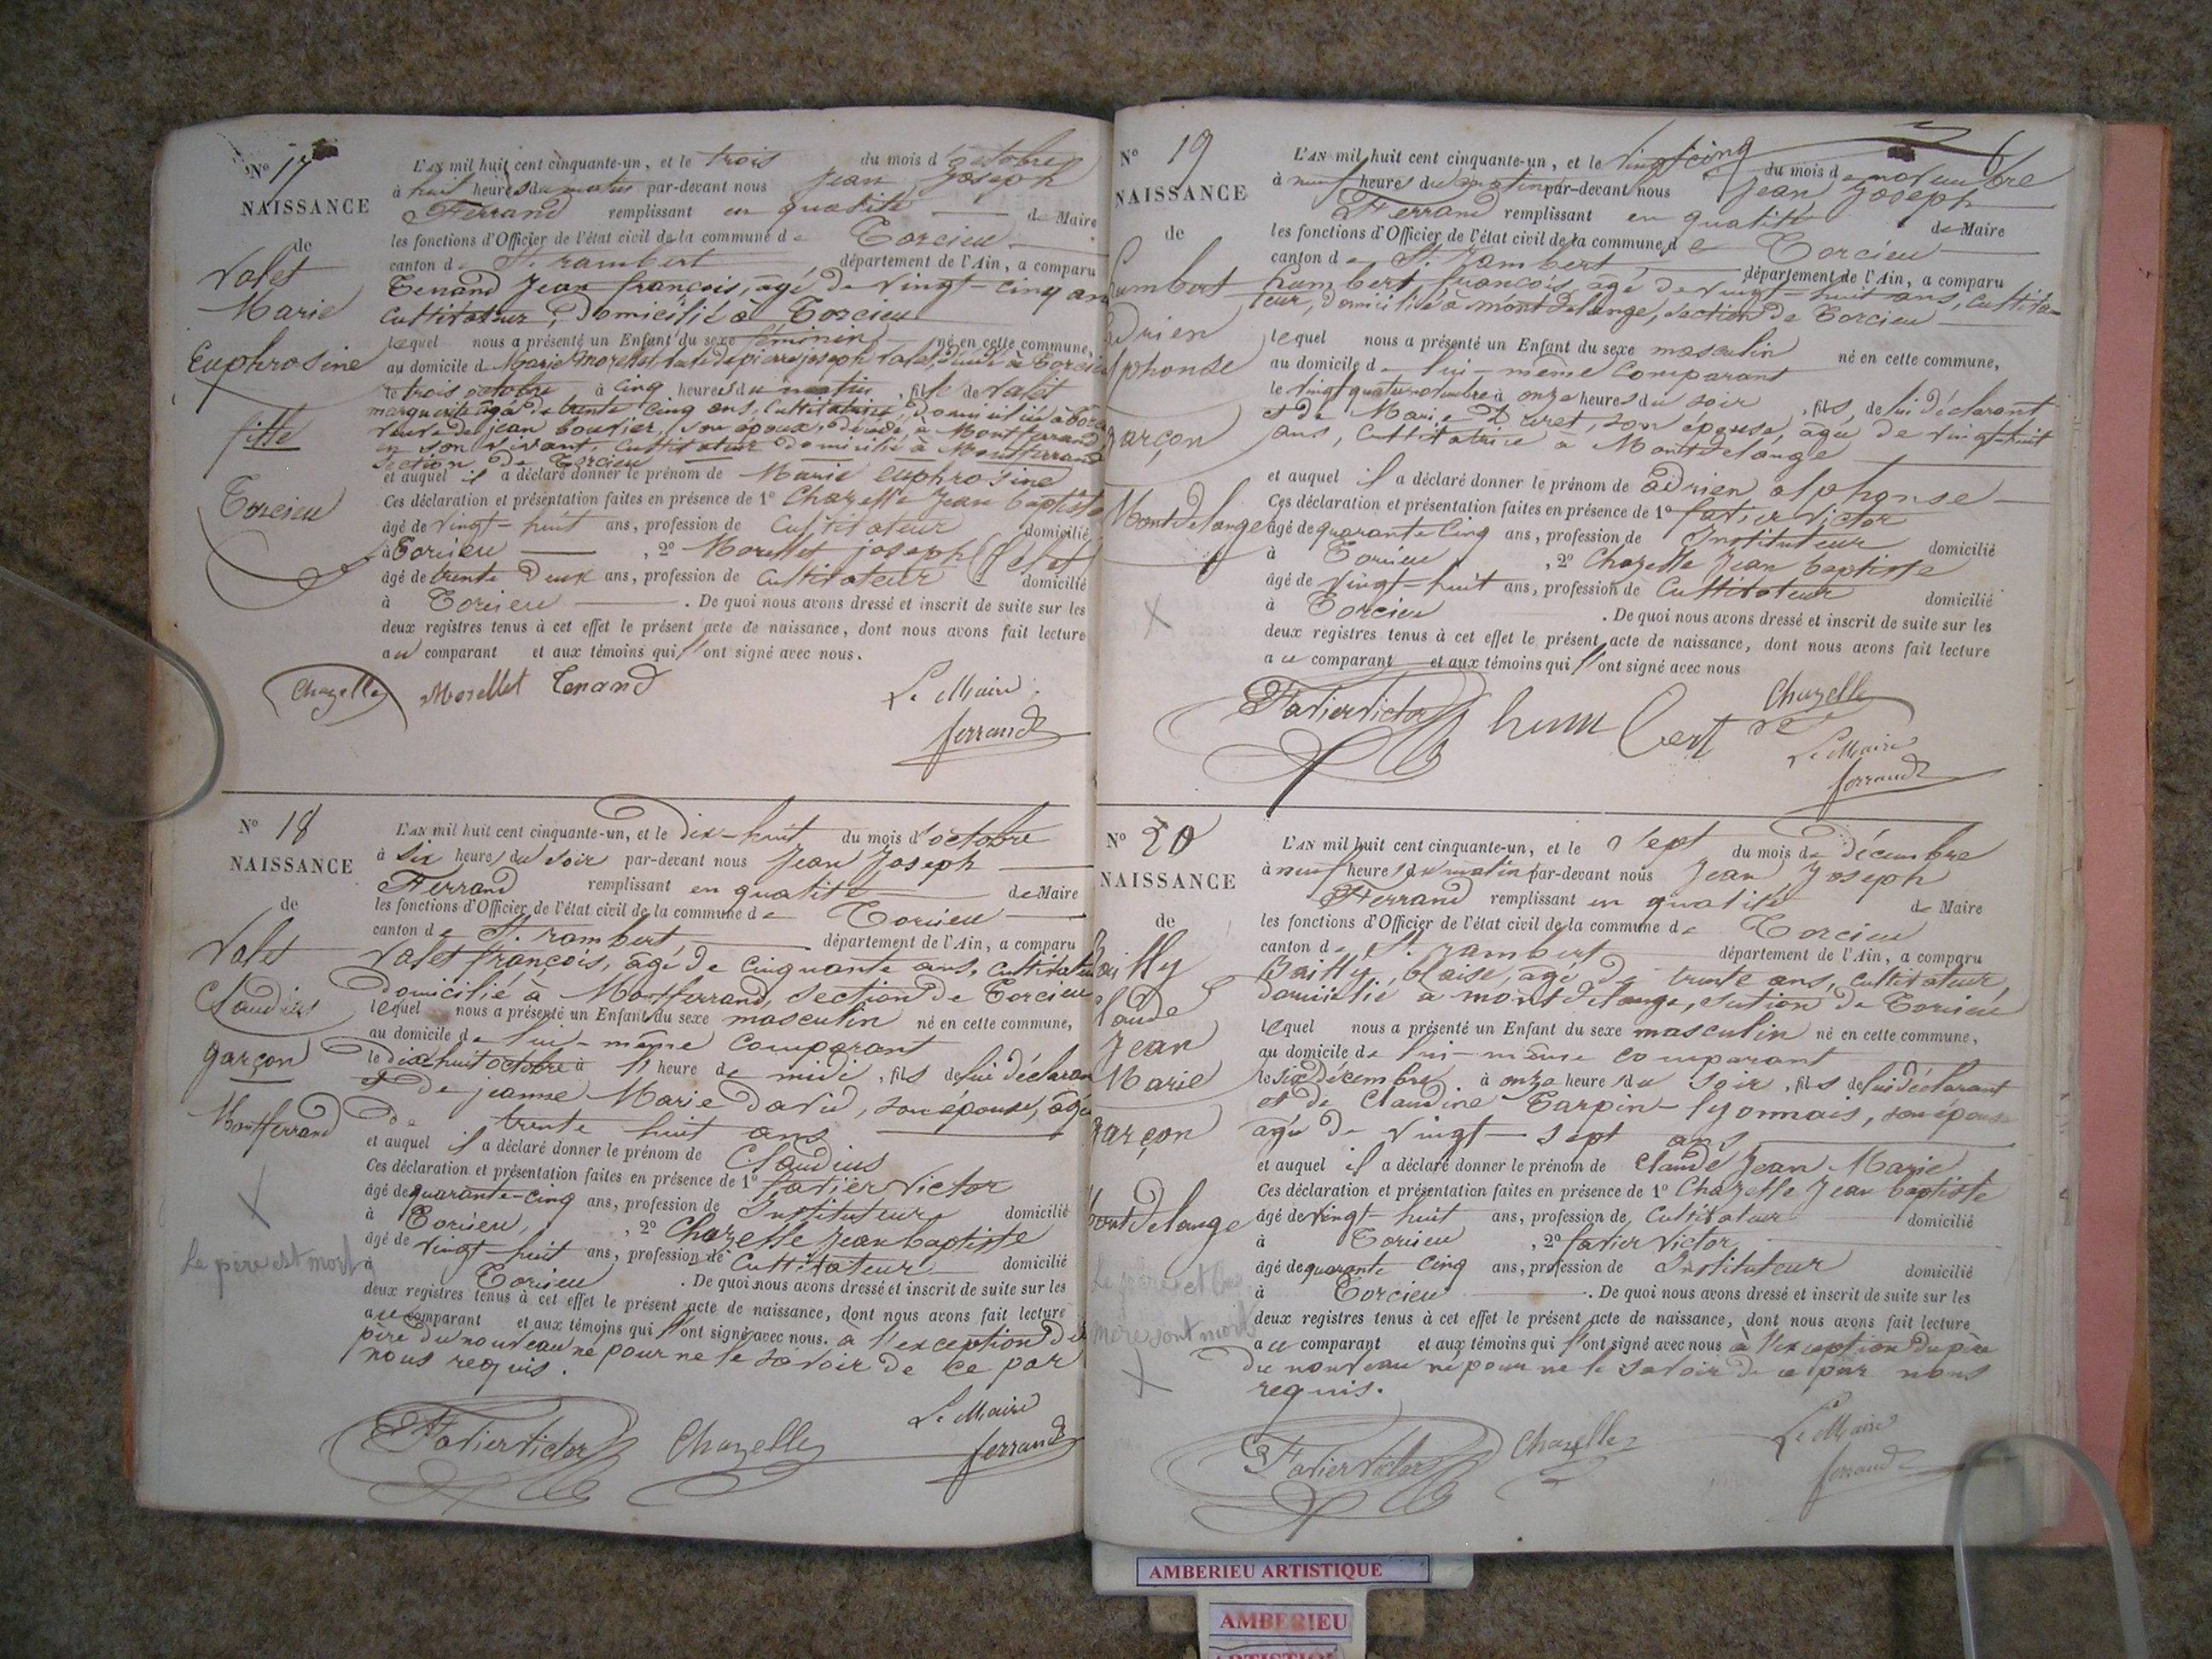 N° 17
NAISSANCE
de
Valet
Marie
Euphrosine
fille
Torcieu
L'AN mil huit cent cinquante-un, et le trois du mois d'octobre
à huit heures du matin par-devant nous Jean Joseph
Ferrand remplissant en qualité de Maire
les fonctions d'Officier de l'état civil de la commune de Torcieu
canton de St. rambert département de l'Ain, a comparu
Tenand Jean françois, âgé de vingt-cinq ans
cultivateur, domicilié à Torcieu
lequel nous a présenté un Enfant du sexe féminin né en cette commune,
au domicile de Marie Morellet, pierre joseph Valet, à Torcieu
le trois octobre à cinq heures du matin, fille de Valet
marguerite âgée de trente cinq ans, cultivatrice, domiciliée à
veuve de jean bouvier, son époux, décédé à Montferrand
en son vivant, cultivateur domicilié à Montferrand
section de Torcieu
et auquel il a déclaré donner le prénom de Marie euphrosine
Ces déclaration et présentation faites en présence de 1° Chazelle Jean baptiste
âgé de vingt-huit ans, profession de cultivateur domicilié
à Torcieu, 2° Morellet joseph
âgé de trente deux ans, profession de cultivateur domicilié
à Torcieu. De quoi nous avons dressé et inscrit de suite sur les
deux registres tenus à cet effet le présent acte de naissance, dont nous avons fait lecture
au comparant et aux témoins qui l'ont signé avec nous.
Chazelle Morellet Tenand Le Maire
ferrand
N° 18
NAISSANCE
de
Valet
Claudius
garçon
Montferrand
Le père est mort
L'AN mil huit cent cinquante-un, et le dix-huit du mois d'octobre
à six heures du soir par-devant nous Jean Joseph
Ferrand remplissant en qualité de Maire
les fonctions d'Officier de l'état civil de la commune de Torcieu
canton de St. rambert, département de l'Ain, a comparu
Valet françois, âgé de cinquante ans, cultivateur
domicilié à Montferrand, section de Torcieu
lequel nous a présenté un Enfant du sexe masculin né en cette commune,
au domicile de lui-même comparant
le dix huit octobre à 11 heure de midi, fils de lui déclarant
et de jeanne Marie David, son épouse, âgée
de trente huit ans
et auquel il a déclaré donner le prénom de Claudius
Ces déclaration et présentation faites en présence de 1° favier victor
âgé de quarante-cinq ans, profession de Instituteur domicilié
à Torcieu, 2° Chazelle Jean baptiste
âgé de vingt-huit ans, profession de cultivateur domicilié
à Torcieu. De quoi nous avons dressé et inscrit de suite sur les
deux registres tenus à cet effet le présent acte de naissance, dont nous avons fait lecture
au comparant et aux témoins qui l'ont signé avec nous. a l'exception du
père du nouveau né pour ne le savoir de ce par
nous requis.
Favier Victor Chazelle Le Maire
ferrand
N° 19
NAISSANCE
de
humbert
adrien
alphonse
garçon
Montdelange
6
L'AN mil huit cent cinquante-un, et le vingt cinq du mois de novembre
à neuf heures du matin par-devant nous Jean Joseph
Ferrand remplissant en qualité de Maire
les fonctions d'Officier de l'état civil de la commune de Torcieu
canton de St. rambert département de l'Ain, a comparu
humbert françois, âgé de vingt-huit ans, cultiva-
teur, domicilié à montdelange, section de Torcieu
lequel nous a présenté un Enfant du sexe masculin né en cette commune,
au domicile de lui-même comparant
le vingt quatre novembre à onze heures du soir, fils de lui déclarant
et de Marie son épouse, âgée de vingt-huit
ans, cultivatrice à Montdelange
et auquel il a déclaré donner le prénom de adrien alphonse
Ces déclaration et présentation faites en présence de 1° favier victor
âgé de quarante cinq ans, profession de Instituteur domicilié
à Torcieu, 2° Chazelle Jean baptiste
âgé de vingt-huit ans, profession de cultivateur domicilié
à Torcieu. De quoi nous avons dressé et inscrit de suite sur les
deux registres tenus à cet effet le présent acte de naissance, dont nous avons fait lecture
au comparant et aux témoins qui l'ont signé avec nous
Favier Victor humbert Chazelle
Le Maire
ferrand
N° 20
NAISSANCE
de
Bailly
Claude
Jean
Marie
garçon
Montdelange
Le père et la
mère sont morts
L'AN mil huit cent cinquante-un, et le sept du mois de décembre
à neuf heures du matin par-devant nous Jean Joseph
Ferrand remplissant en qualité de Maire
les fonctions d'Officier de l'état civil de la commune de Torcieu
canton de St. rambert département de l'Ain, a comparu
Bailly, blaise, âgé de trente ans, cultivateur,
domicilié à montdelange, section de Torcieu
lequel nous a présenté un Enfant du sexe masculin né en cette commune,
au domicile de lui-même comparant
le six décembre à onze heures du soir, fils de lui déclarant
et de Claudine Tarpin-lyonnais, son épouse
âgée de vingt-sept ans
et auquel il a déclaré donner le prénom de Claude Jean Marie
Ces déclaration et présentation faites en présence de 1° Chazelle Jean baptiste
âgé de vingt-huit ans, profession de cultivateur domicilié
à Torcieu, 2° favier victor
âgé de quarante cinq ans, profession de Instituteur domicilié
à Torcieu. De quoi nous avons dressé et inscrit de suite sur les
deux registres tenus à cet effet le présent acte de naissance, dont nous avons fait lecture
au comparant et aux témoins qui l'ont signé avec nous à l'exception du père
du nouveau né pour ne le savoir de ce par nous
requis.
Favier Victor Chazelle Le Maire
ferrand
AMBERIEU ARTISTIQUE
AMBERIEU
ARTISTIQUE